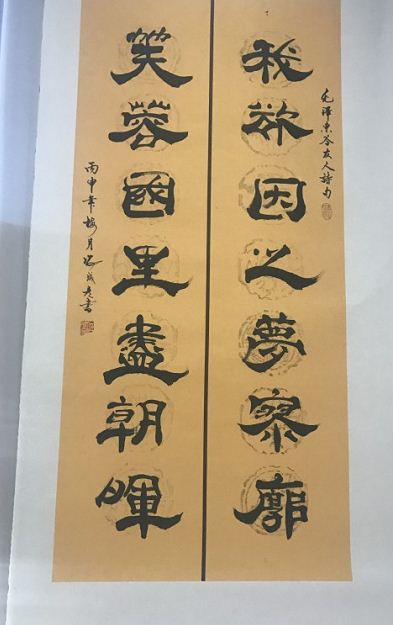 毛澤東答友人詩句
我欲因之夢寥廓
芙蓉國里盡朝暉
丙申年梅月成書